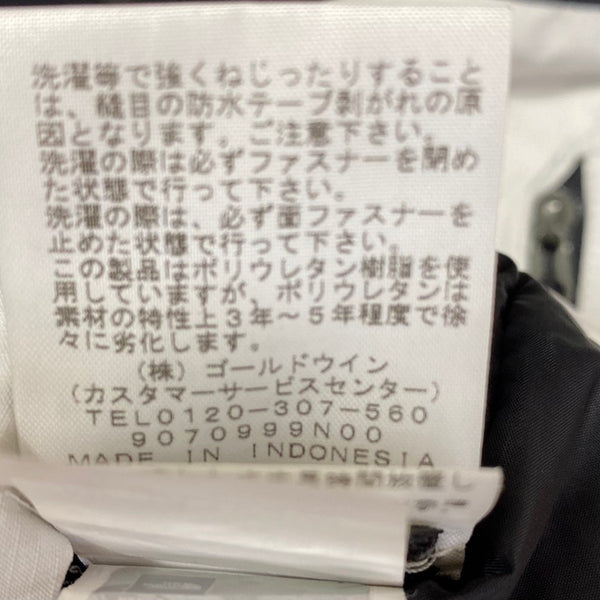 洗濯等で強くねじったりすること
は、縫目の防水テープ剥がれの原
因となります。ご注意下さい。
洗濯の際は必ずファスナーを閉め
た状態で行って下さい。
洗濯の際は、必ず面ファスナーを
止めた状態で行って下さい。
この製品はポリウレタン樹脂を使
用していますが、ポリウレタンは
素材の特性上3年～5年程度で徐
々に劣化します。
(株)ゴールドウイン
(カスタマーサービスセンター)
TEL0120-307-560
9070999N00
MADE IN INDONESIA